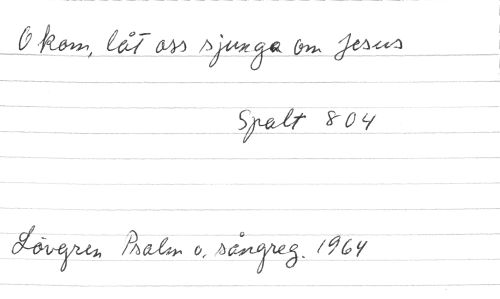 O kom, låt oss sjunga om Jesus
Spalt 804
Lövgren Psalm o. sångreg. 1964